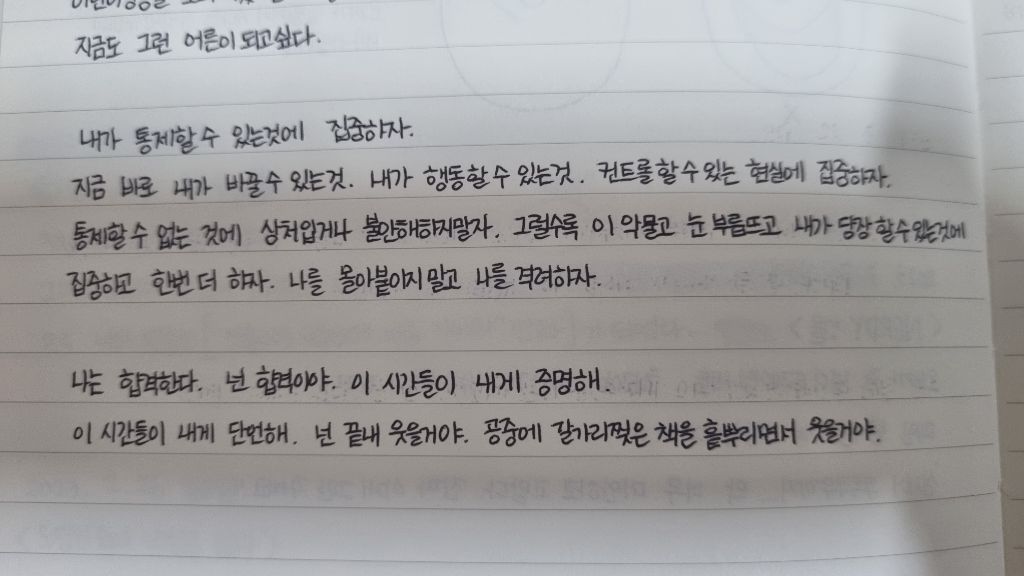 지금도 그런 어른이 되고싶다.
내가 통제할 수 있는것에 집중하자.
지금 바로 내가 바꿀 수 있는것. 내가 행동할 수 있는것. 컨트롤 할 수 있는 현실에 집중하자.
통제할 수 없는 것에 상처입거나 불안해하지말자. 그럴수록 이 악물고 눈 부릅뜨고 내가 당장 할 수 있는것에
집중하고 한번 더 하자. 나를 몰아붙이지 말고 나를 격려하자.
나는 합격한다. 넌 합격이야. 이 시간들이 내게 증명해.
이 시간들이 내게 단언해. 넌 끝내 웃을거야. 공중에 갈가리찢은 책을 흩뿌리면서 웃을거야.